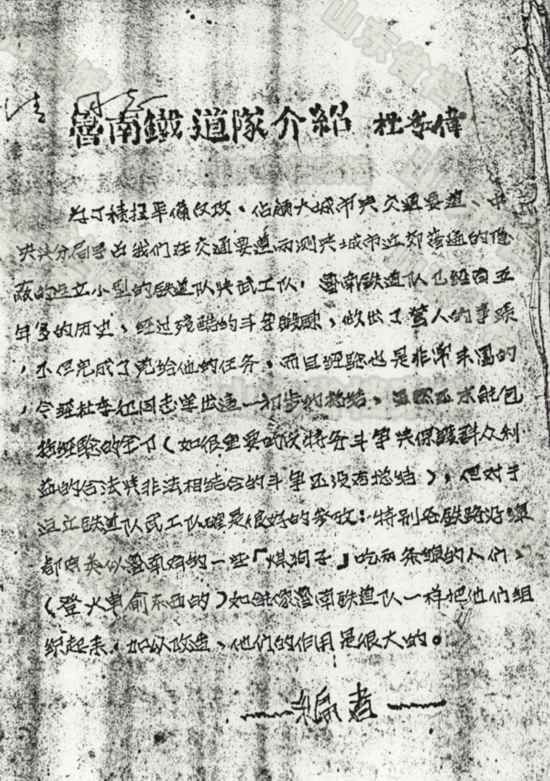 魯南鐵道隊介紹 杜季偉
为了積极準備反攻、佔領大城市与交通要道、中
央分局号召我们在交通要道两测与城市近郊普遍的
建立小型的鉄道队与武工队，魯南鉄道队已經有五
年多的历史、經过殘酷的斗争鍛鍊，做出了驚人的事跡
，不但完成了党給他的任务，而且經驗也是非常丰富的
，今經杜季伟同志單出這一初步的總結，虽然还未能包
括經驗的全了（如很重要的反特务斗争与保護群众利
益的合法与非法相結合的斗争还没有总結），但对于
建立鉄道队民工队確是很好的参攷；特别在鉄路沿線
都有类似魯南的一些「煤狗子」吃两条線的人们、
（登火車偷东西的）如能像魯南鉄道队一样把他们組
織起来，加以改造、他们的作用是很大的。
——編者——